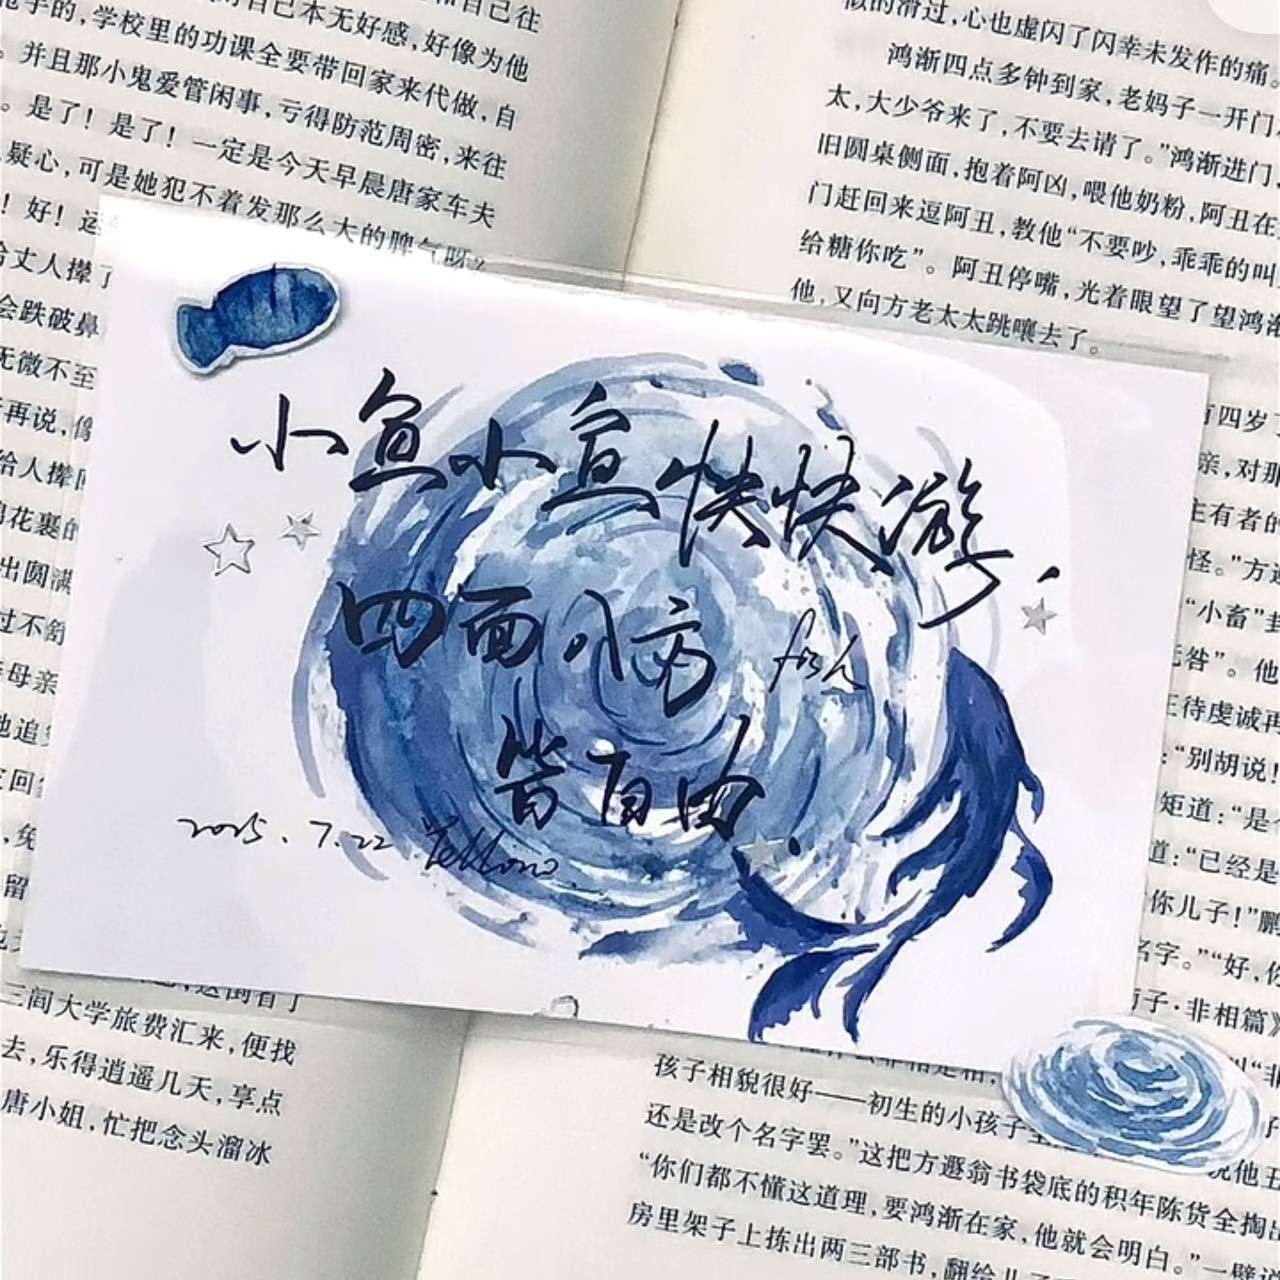 自己本无好感，好像为他
的，学校里的功课全要带回家来代做，自
。并且那小鬼爱管闲事，亏得防范周密，来往
。是了！是了！一定是今天早晨唐家车夫
疑心，可是她犯不着发那么大的脾气呀？
！好！运
给丈人撵了
会跌破鼻
无微不至
再说，像
给人撵
花裹的
出圆满
过不舒
母亲
他追
回
留
三闾大学旅费汇来，便找
去，乐得逍遥几天，享点
唐小姐，忙把念头溜冰
似的滑过，心也虚闪了闪幸未发作的痛。
鸿渐四点多钟到家，老妈子一开门
太，大少爷来了，不要去请了。”鸿渐进门，
旧圆桌侧面，抱着阿凶，喂他奶粉，阿丑在
门赶回来逗阿丑，教他“不要吵，乖乖的叫
给糖你吃”。阿丑停嘴，光着眼望了望鸿渐
他，又向方老太太跳嚷去了。
有四岁
亲，对那
生有者的
怪。”方遯
“小畜”卦
无咎”。他
正待虔诚再
：“别胡说！
矩道：“是
道：“已经是
你儿子！”鹏
名字。”“好，你
荀子·非相篇》
叫“非
孩子相貌很好——初生的小孩子
还是改个名字罢。”这把方遯翁书袋底的积年陈货全掏出
“你们都不懂这道理，要鸿渐在家，他就会明白。”一壁说
房里架子上拣出两三部书，翻给儿
小鱼小鱼快快游.
四面八方 fish
皆自由.
2025.7.22